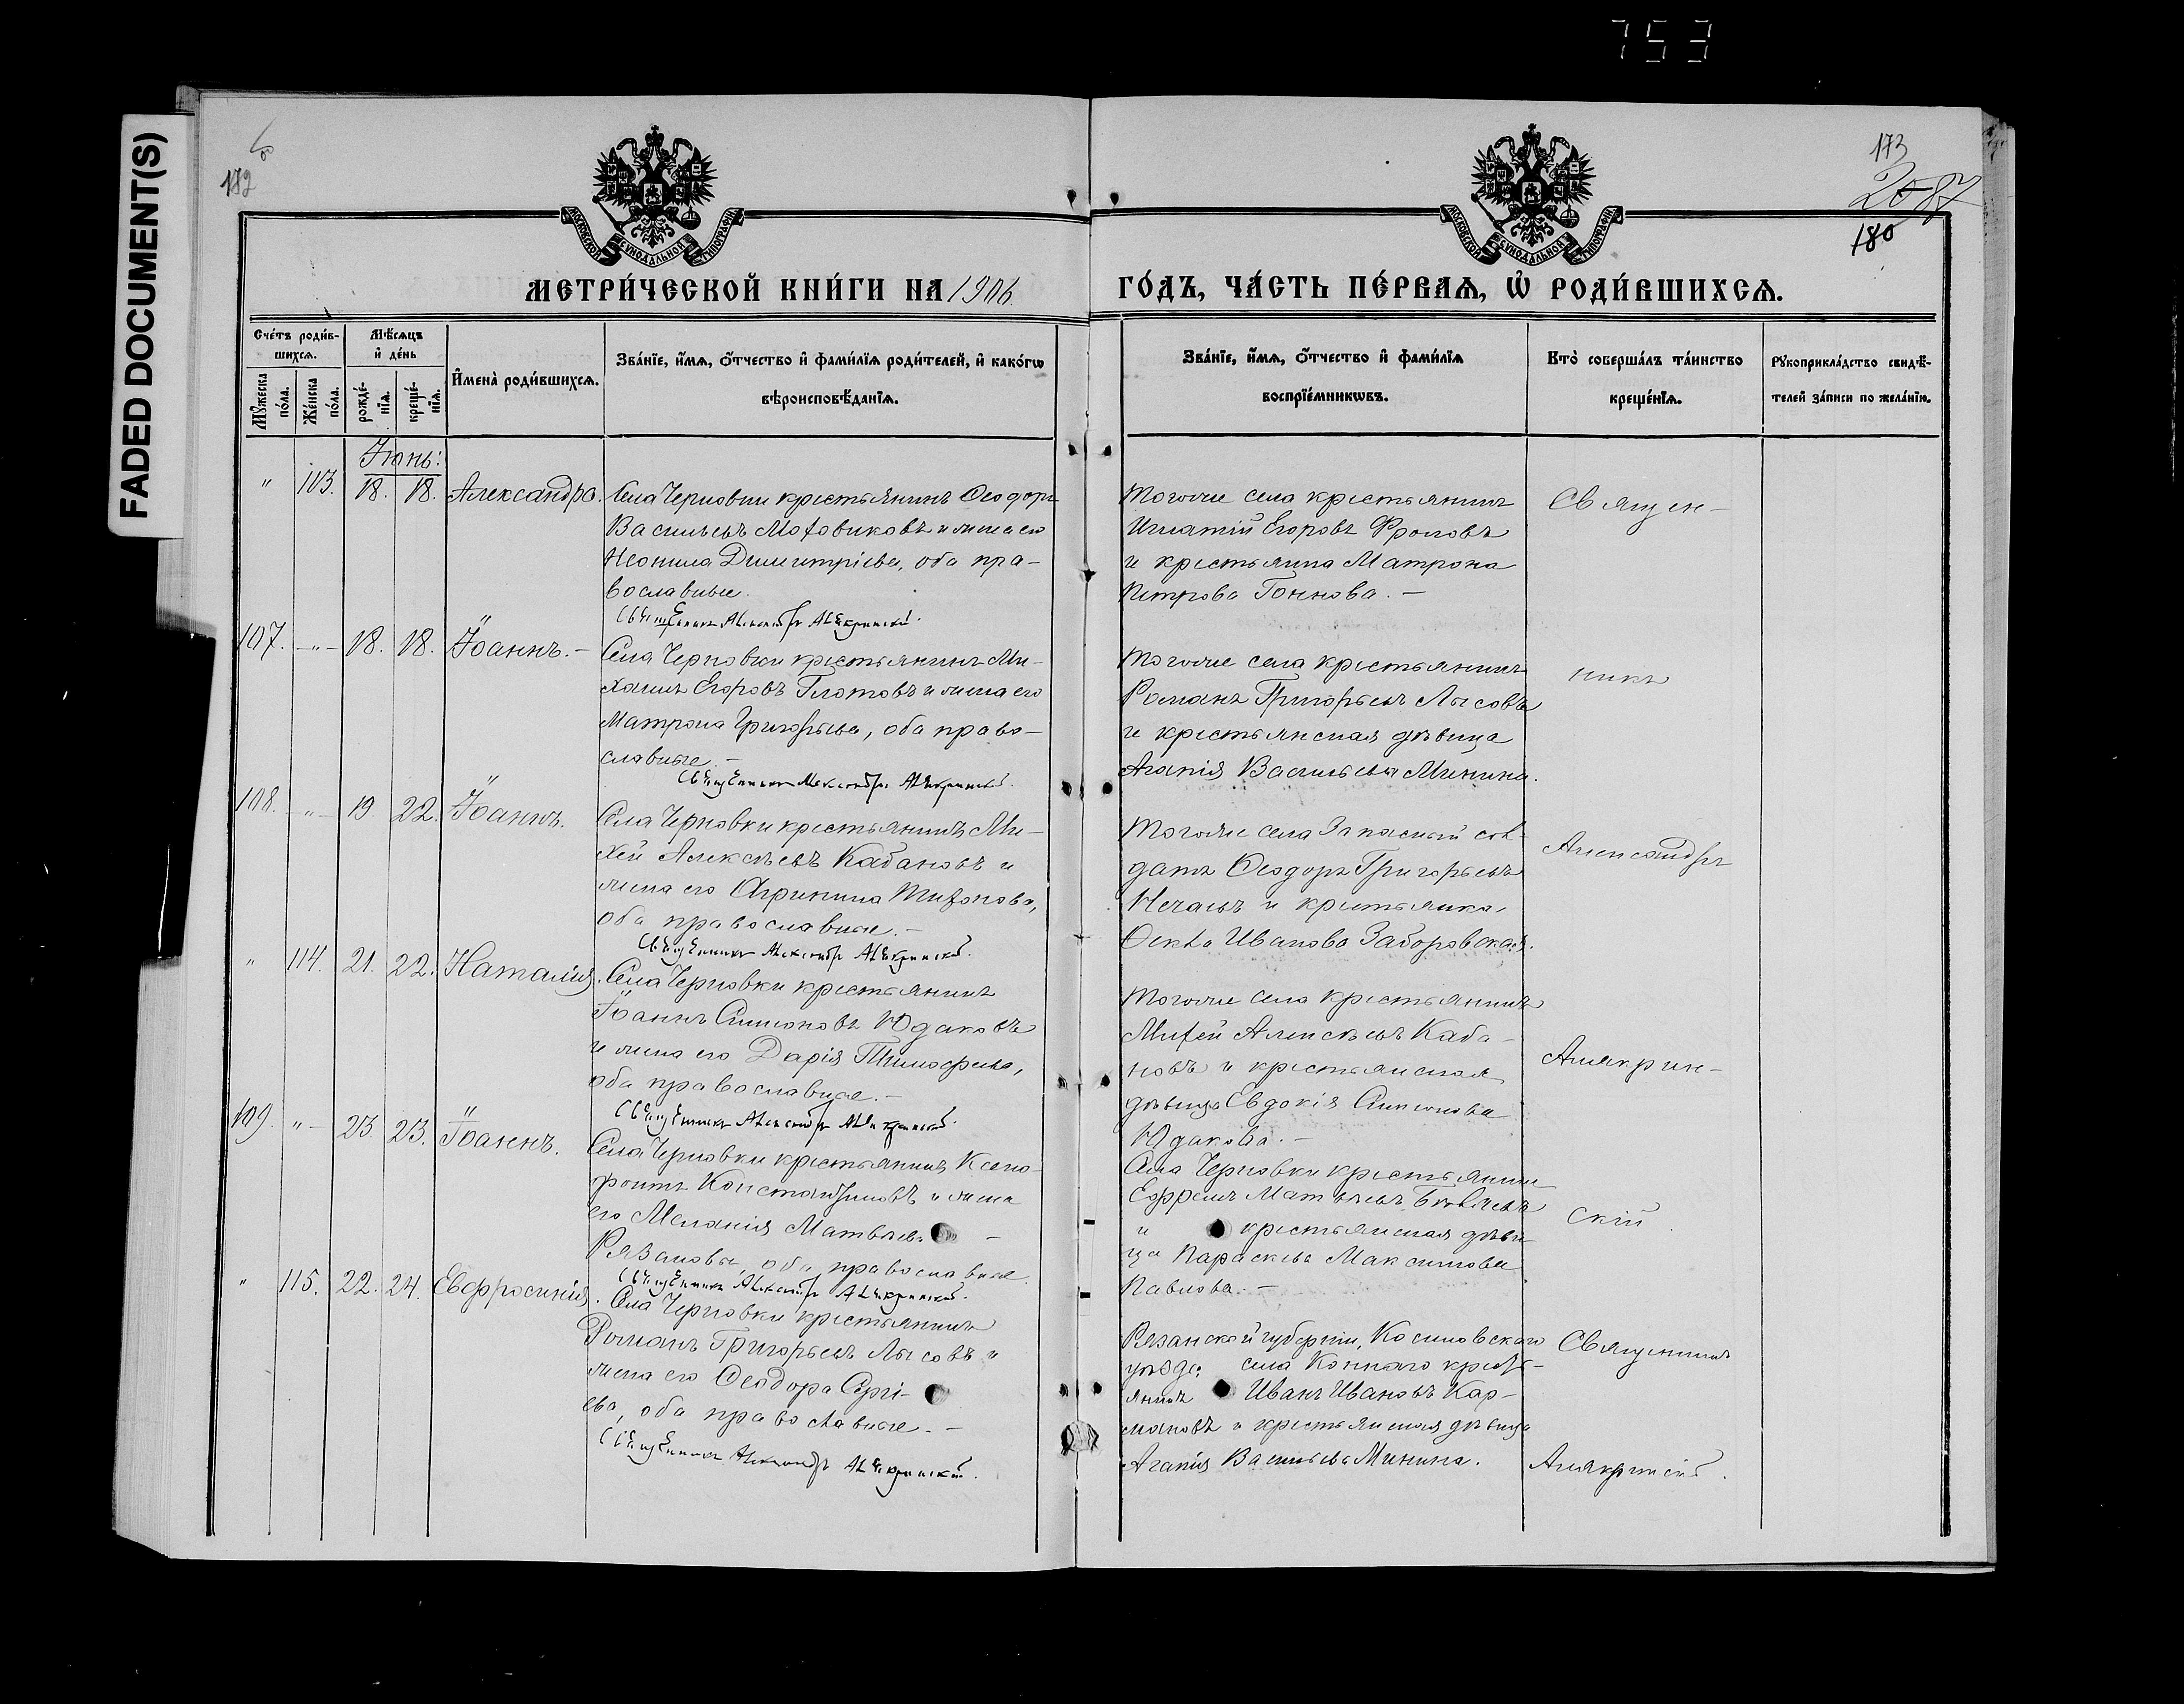 753
FADED DOCUMENT(S)
182
173
2087
180
МОСКОВСКОЙ СѴНОДАЛЬНОЙ ТИПОГРАФІИ
МОСКОВСКОЙ СѴНОДАЛЬНОЙ ТИПОГРАФІИ
МЕТРИ́ЧЕСКОЙ КНИ́ГИ НА 1906
ГО́ДЪ, ЧА́СТЬ ПЕ́РВАѦ, Ѡ҆ РОДИ́ВШИХСѦ.
Сче́тъ роди́в-
шихсѧ.
Мꙋ́жеска
по́ла.
Же́нска
по́ла.
Мѣ́сѧцъ
и҆ де́нь
рожде́-
нїѧ.
креще́-
нїѧ.
И҆мена̀ роди́вшихсѧ.
Зва́нїе, и҆́мѧ, ѻ҆́тчество и҆ фами́лїѧ роди́телей, и҆ како́гѡ
вѣроисповѣ́данїѧ.
Зва́нїе, и҆́мѧ, ѻ҆́тчество и҆ фами́лїѧ
воспрїе́мникѡвъ.
Кто̀ соверша́лъ та́инство
креще́нїѧ.
Рꙋкоприкла́дство свидѣ́-
телей за́писи по жела́нїю.
Іюнь:
" 113. 18. 18. Александра.
Села Черновки крестьянинъ Ѳеодоръ
Васильевъ Моховиковъ и жена его
Неонила Димитріева, оба пра-
вославные.
Священникъ Александръ Алякринскій.
Тогоже села крестьянинъ
Игнатій Егоровъ Фроловъ
и крестьянка Матрона
Петрова Гоннова. —
Священ-
107. -"- 18. 18. Іоаннъ. —
Села Черновки крестьянинъ Ми-
хаилъ Егоровъ Глотовъ и жена его
Матрона Григорьева, оба право-
славные. —
Священникъ Александръ Алякринскій.
Тогоже села крестьянинъ
Романъ Григорьевъ Лысовъ
и крестьянская дѣвица
Агапія Васильева Минина.
никъ
108. -"- 19 22. Іоаннъ.
Села Черновки крестьянинъ Ми-
хей Алексѣевъ Кабановъ и
жена его Агрипина Тихонова,
оба православные. —
Священникъ Александръ Алякринскій.
Тогоже села Запасный сол-
датъ Ѳеодоръ Григорьевъ
Нечаевъ и крестьянка
Ѳекла Иванова Заборовская.
Александръ
" 114. 21. 22. Наталія.
Села Черновки крестьянинъ
Іоаннъ Симоновъ Юдаковъ
и жена его Дарія Тимофеева,
оба православные. —
Священникъ Александръ Алякринскій.
Тогоже села крестьянинъ
Михей Алексѣевъ Каба-
новъ и крестьянская
дѣвица Евдокія Симонова
Юдакова. —
Алякрин-
109. "- 23 23. Іоаннъ.
Села Черновки крестьянинъ Ксено-
фонтъ Константиновъ и жена
его Меланія Матвѣева —
Рязановы, оба православные.
Священникъ Александръ Алякринскій.
Села Черновки крестьянинъ
Ефремъ Матвѣевъ
и крестьянская дѣви-
ца Параскева Максимова
Павлова. —
скій.
" 115. 22. 24. Евфросинія.
Села Черновки крестьянинъ
Романъ Григорьевъ Лысовъ и
жена его Ѳеодора Сергі-
ева, оба православные. —
Священникъ Александръ Алякринскій.
Рязанской губерніи, Косимовскаго
уѣзда села Коннаго кресть-
янинъ Иванъ Ивановъ Кар-
мановъ и крестьянская дѣвица
Агапія Васильева Минина.
Священникъ
Алякринскій.